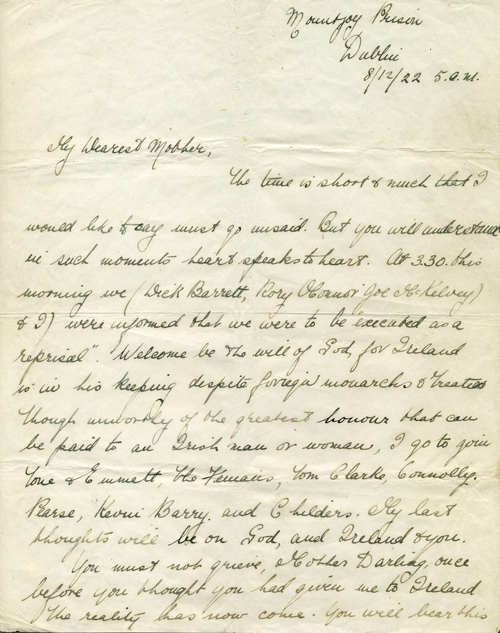 Mountjoy Prison
Dublin
8/12/22 5.a.m.
My Dearest Mother,
The time is short & much that I
would like to say must go unsaid. But you will understand
in such moments heart speaks to heart. At 3.30. this
morning we (Dick Barrett, Rory O'Connor Joe McKelvey)
& I) were informed that we were to be "executed as a
reprisal". Welcome be the will of God, for Ireland
is in his keeping despite foreign monarchs & treaties
Though unworthy of the greatest honour that can
be paid to an Irish man or woman, I go to join
Tone & Emmett, the Fenians, Tom Clarke, Connolly,
Pearse, Kevin Barry and Childers. My last
thoughts will be on God, and Ireland & you.
You must not grieve, Mother Darling, once
before you thought you had given me to Ireland
The reality has now come. You will bear this